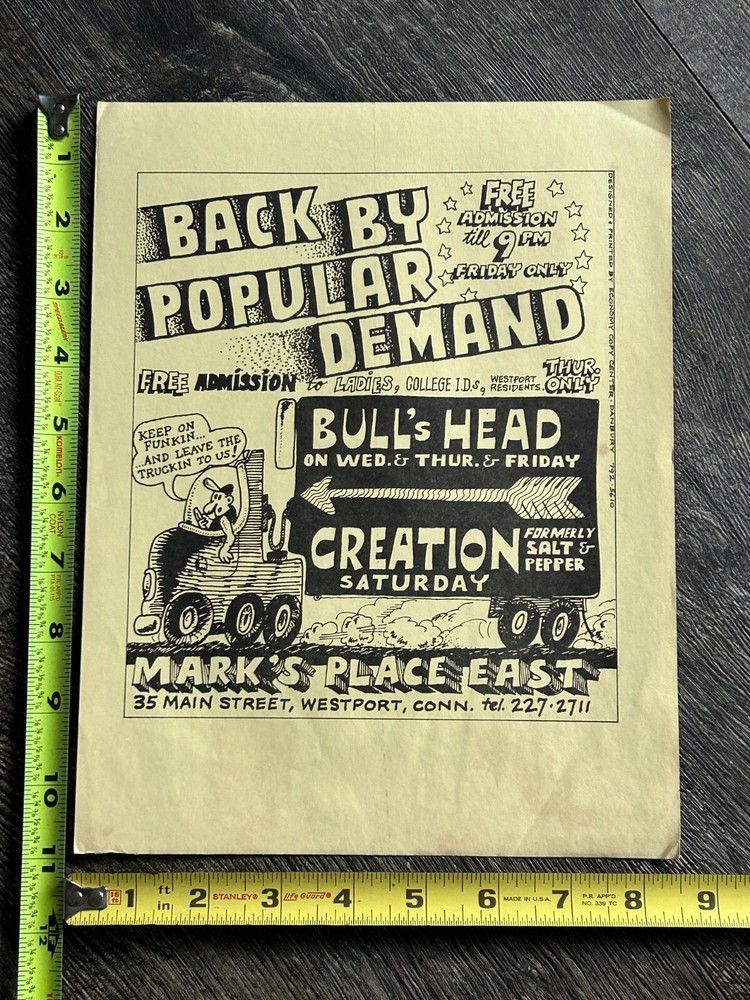 BACK BY
POPULAR
DEMAND
FREE
ADMISSION
till 9 PM
FRIDAY ONLY
FREE ADMISSION to LADIES, COLLEGE I.D.s, WESTPORT RESIDENTS. THUR. ONLY
KEEP ON
FUNKIN...
...AND LEAVE THE
TRUCKIN TO US!
BULL's HEAD
ON WED. & THUR. & FRIDAY
CREATION FORMERLY SALT & PEPPER
SATURDAY
MARK'S PLACE EAST
35 MAIN STREET, WESTPORT, CONN. tel. 227·2711
DESIGNED & PRINTED BY ECONOMY COPY CENTER· DANBURY 792-5610
1
2
3
4
5
6
7
8
9
10
11
12
KOMELON
NYLON COAT
ft
in
1 2 STANLEY® 3 life Guard® 4 5 6 MADE IN U.S.A. 7 P.R. APP'D NO. 339 TC 8 9